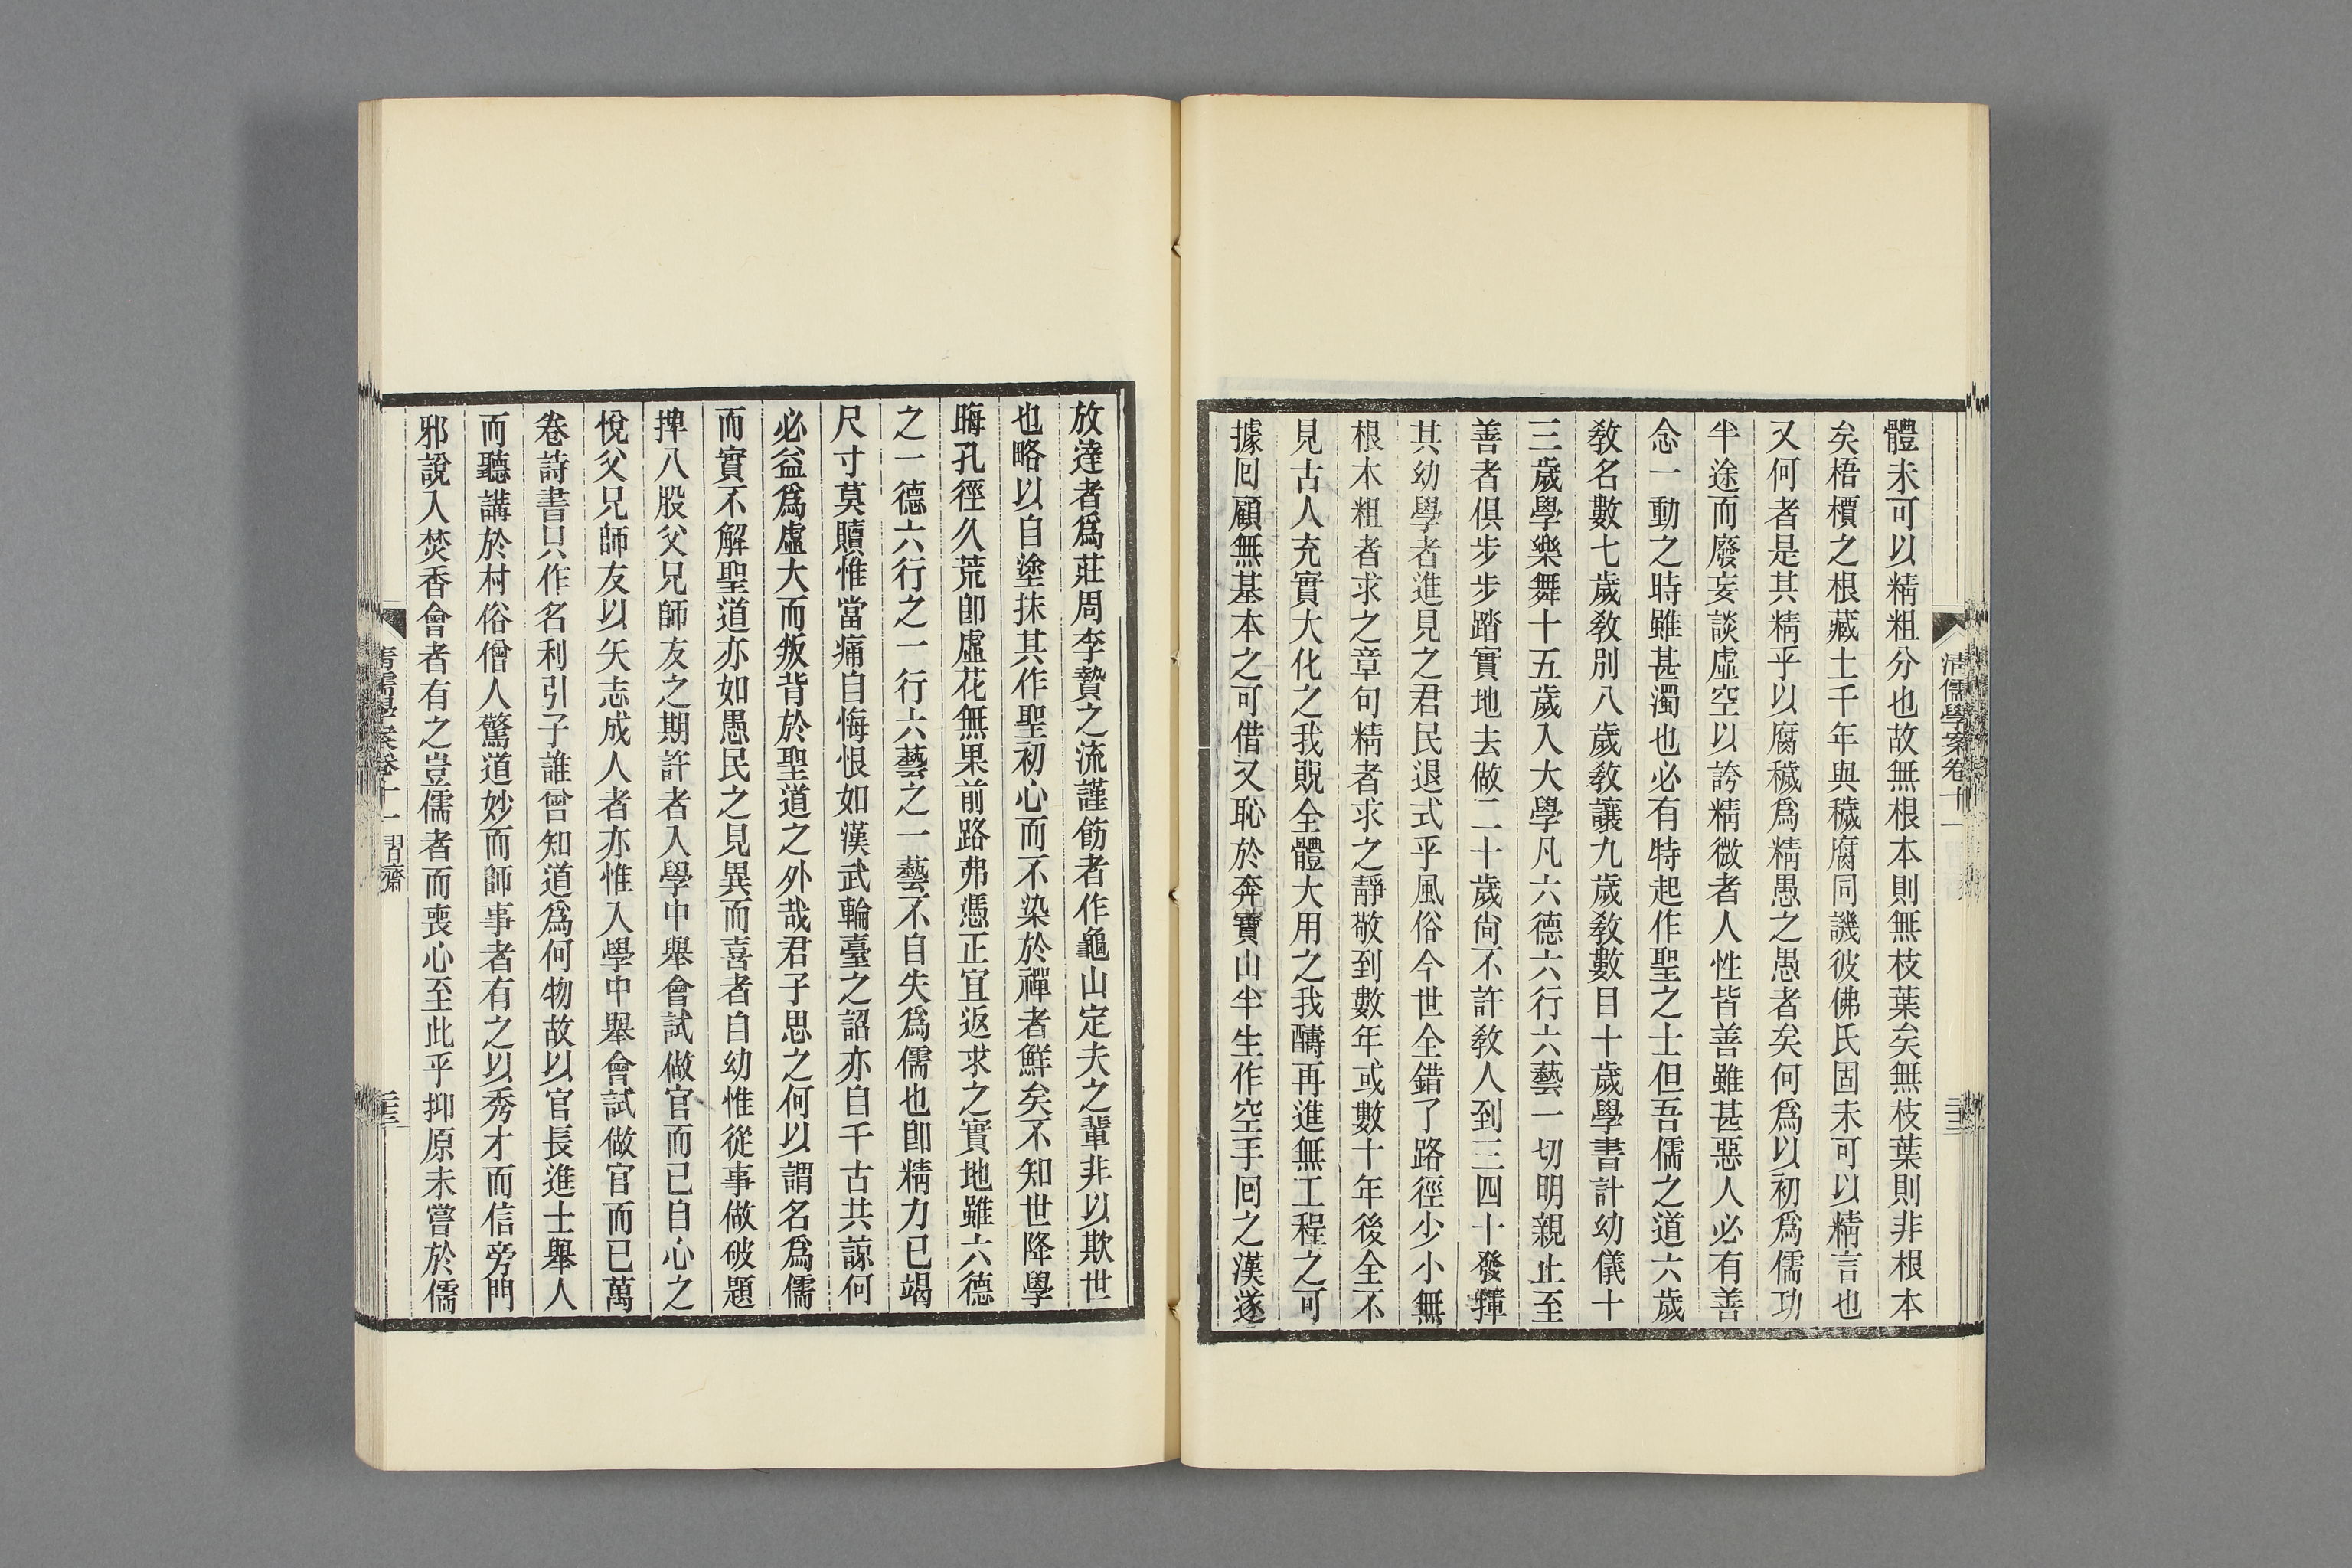 清儒學案卷十一
體未可以精粗分也故無根本則無枝葉矣無枝葉則非根本
矣梧檟之根藏土千年與穢腐同譏彼佛氏固未可以精言也
又何者是其精乎以腐穢爲精愚之愚者矣何爲以初爲儒功
半途而廢妄談虛空以誇精微者人性皆善雖甚惡人必有善
念一動之時雖甚濁也必有特起作聖之士但吾儒之道六歲
教名數七歲教別八歲教讓九歲教數目十歲學書計幼儀十
三歲學樂舞十五歲入大學凡六德六行六藝一切明親止至
善者俱步步踏實地去做二十歲尙不許教人到三四十發揮
其幼學者進見之君民退式乎風俗今世全錯了路徑少小無
根本粗者求之章句精者求之靜敬到數年或數十年後全不
見古人充實大化之我覞全體大用之我醻再進無工程之可
據回顧無基本之可借又恥於奔寶山半生作空手回之漢遂
放達者爲莊周李贄之流謹飭者作龜山定夫之輩非以欺世
也略以自塗抹其作聖初心而不染於禪者鮮矣不知世降學
晦孔徑久荒卽虛花無果前路弗憑正宜返求之實地雖六德
之一德六行之一行六藝之一藝不自失爲儒也卽精力已竭
尺寸莫贖惟當痛自悔恨如漢武輪臺之詔亦自千古共諒何
必益爲虛大而叛背於聖道之外哉君子思之何以謂名爲儒
而實不解聖道亦如愚民之見異而喜者自幼惟從事做破題
捭八股父兄師友之期許者入學中舉會試做官而已自心之
悅父兄師友以矢志成人者亦惟入學中舉會試做官而已萬
卷詩書只作名利引子誰曾知道爲何物故以官長進士舉人
而聽講於村俗僧人驚道妙而師事者有之以秀才而信旁門
邪說入焚香會者有之豈儒者而喪心至此乎抑原未嘗於儒
清儒學案卷十一 習齋